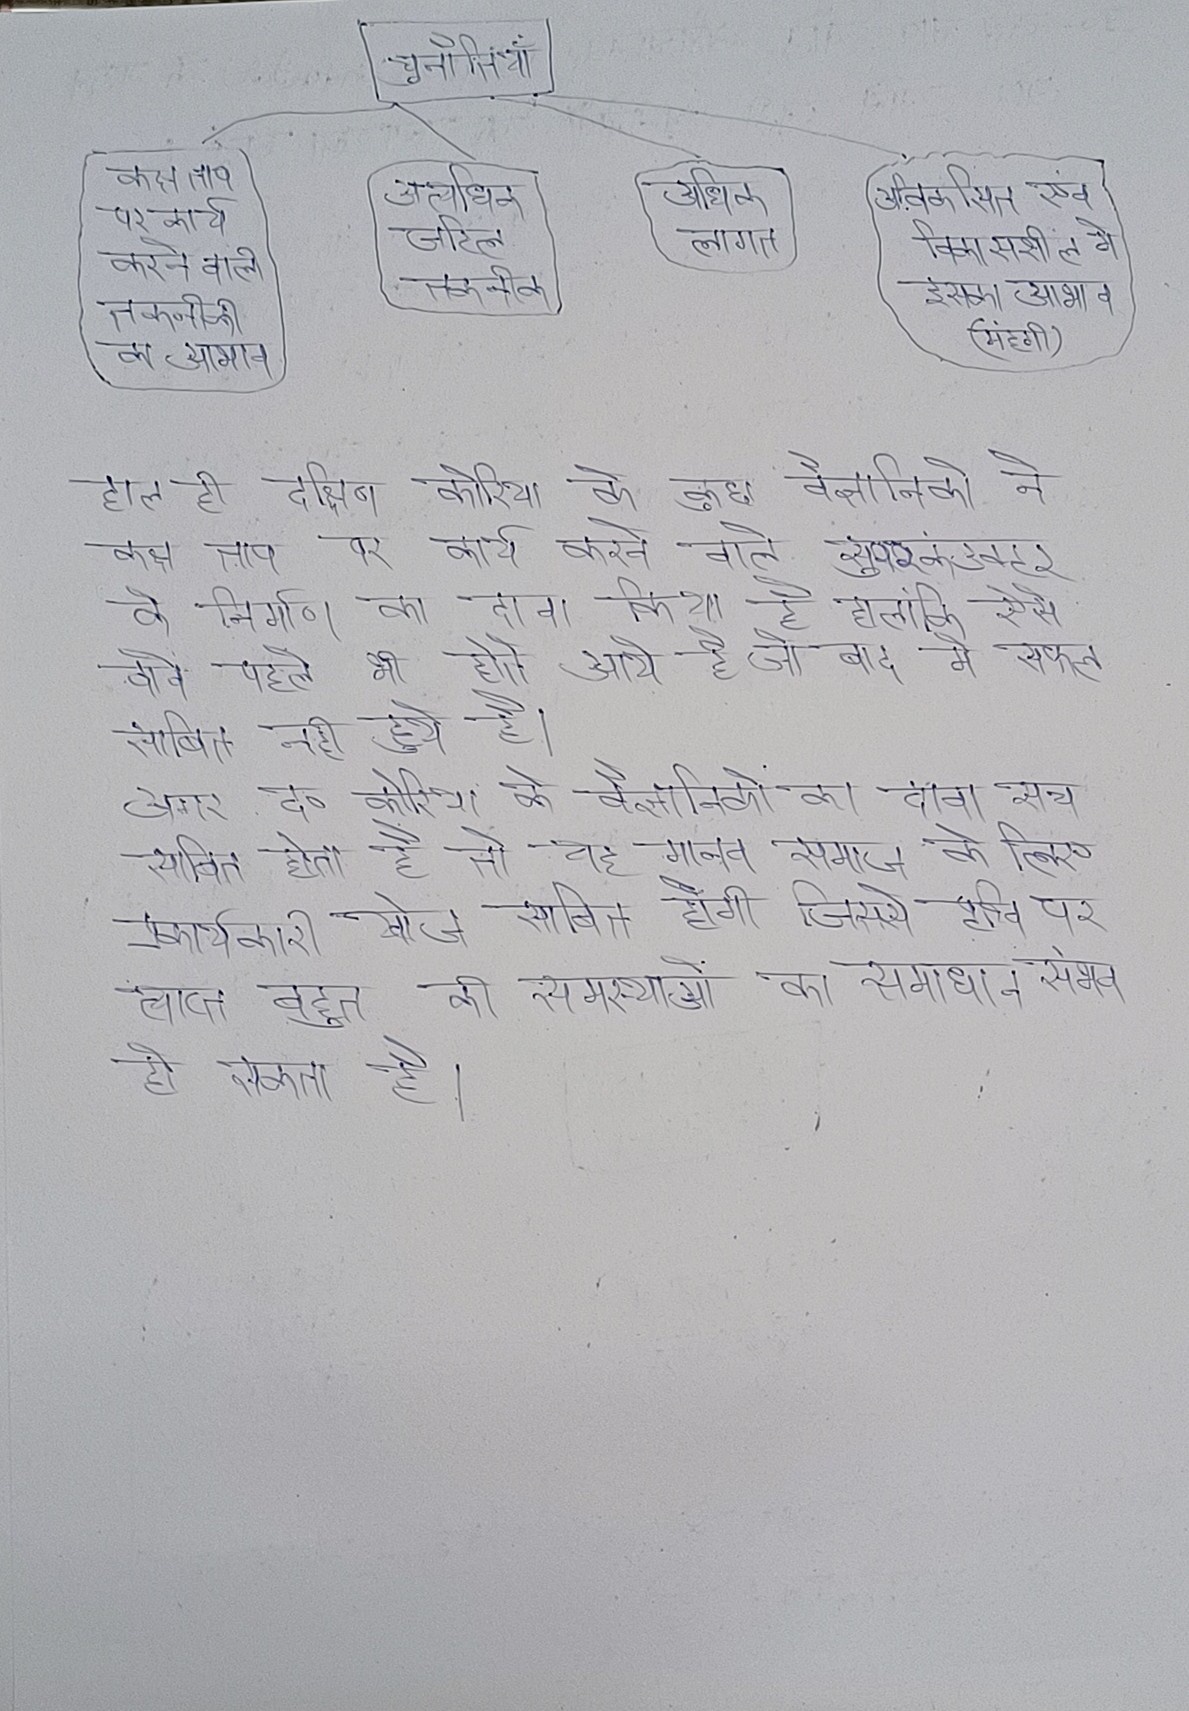 चुनौतियाँ
कक्ष ताप
पर कार्य
करने वाली
तकनीकी
का आभाव
अत्यधिक
जटिल
तकनीक
अधिक
लागत
अविकसित एंव
विकासशील मे
इसका आभाव
(मंहगी)
हाल ही दक्षिण कोरिया के कुछ वैज्ञानिको ने
कक्ष ताप पर कार्य करने वाले सुपरकंडक्टर
के निर्माण का दावा किया है हालांकि ऐसे
दावे पहले भी होते आये है जो बाद मे सफल
साबित नही हुये है।
अगर द० कोरिया के वैज्ञानिकों का दावा सच
साबित होता है तो यह मानव समाज के लिए
खोज साबित होगी जिससे पर
व्याप्त बहुत की समस्याओं का समाधान संभव
हो सकता है।